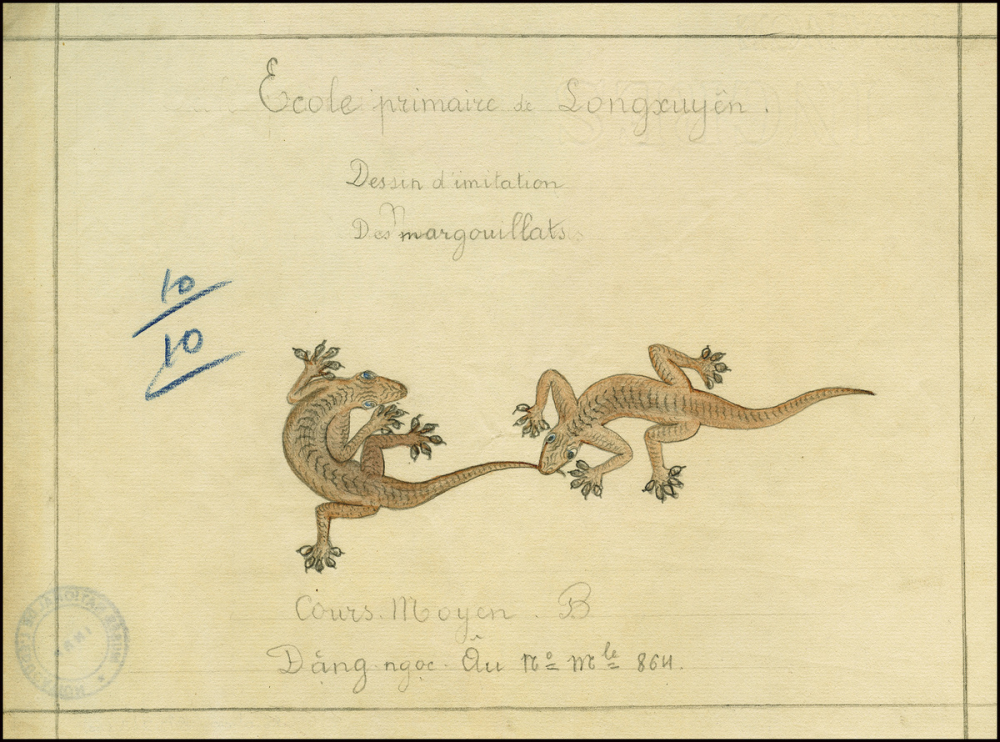 Ecole primaire de Longxuyên.
Dessin d'imitation
Des margouillats
10
10
Cours Moyen. B
Dặng ngọc Âu No Mle 864.